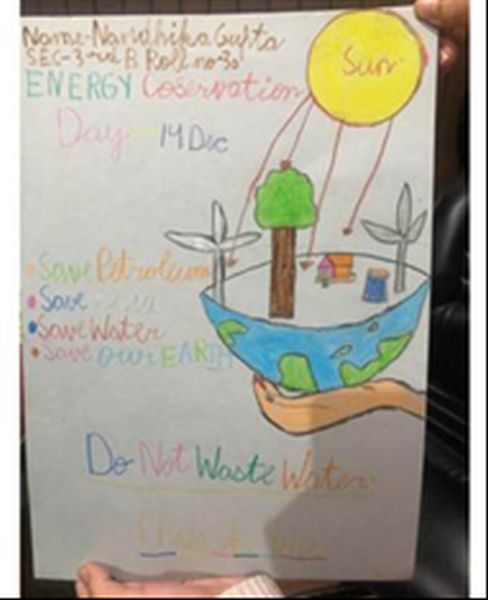 Name-Nandhika Gupta
SEC-3rd B Roll no-30
ENERGY Coservation
Day - 14 Dec
Sun
Save Petroleum
Save
Save Water
Save our EARTH
Do Not Waste Water